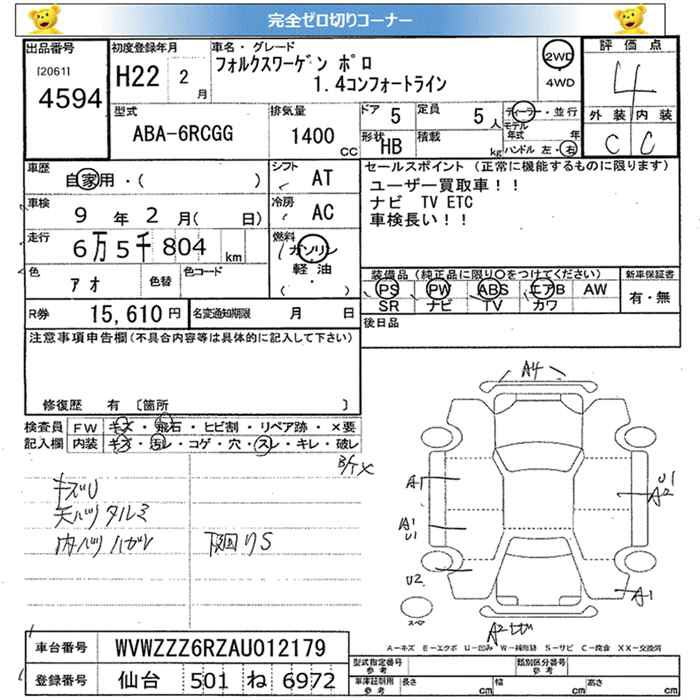 完全ゼロ切りコーナー
出品番号
[2061]
4594
初度登録年月
H22 2月
車名・グレード
フォルクスワーゲン ポロ
1.4コンフォートライン
2WD
・
4WD
評価点
4
外装 内装
C C
型式
ABA-6RCGG
排気量
1400 CC
ドア 5
定員 5人
形状 HB
積載 kg
ディーラー・並行
モデル年式 年
ハンドル 左・右
車歴
自家用・( )
シフト AT
車検
9年2月( 日)
冷房 AC
走行
6万5千804km
燃料
ガソリン
軽油
( ・ )
色 アオ
色替
色コード
R券 15,610円
名変通知期限 月 日
セールスポイント(正常に機能するものに限ります)
ユーザー買取車!!
ナビ TV ETC
車検長い!!
装備品(純正品に限り○をつけてください)
新車保証書
PS PW ABS エアB AW
SR ナビ TV カワ
有・無
後日品
注意事項申告欄(不具合内容等は具体的に記入して下さい)
修復歴 有 〔箇所 〕
検査員記入欄
FW キズ・飛石・ヒビ割・リペア跡・×要
内装 キズ・汚レ・コゲ・穴・スレ・キレ・破レ
キズU
天バリタルミ
下回りS
A4
A1
A1
U1
U2
U1
A2
A1
A2
A-キズ E-エクボ U-凹み W-補修跡 S-サビ C-腐食 XX-交換済
車台番号 WVWZZZ6RZAU012179
登録番号 仙台 501 ね 6972
型式指定番号
参考
類別区分番号
参考
車庫証明用
参考
長さ cm
幅 cm
高さ cm